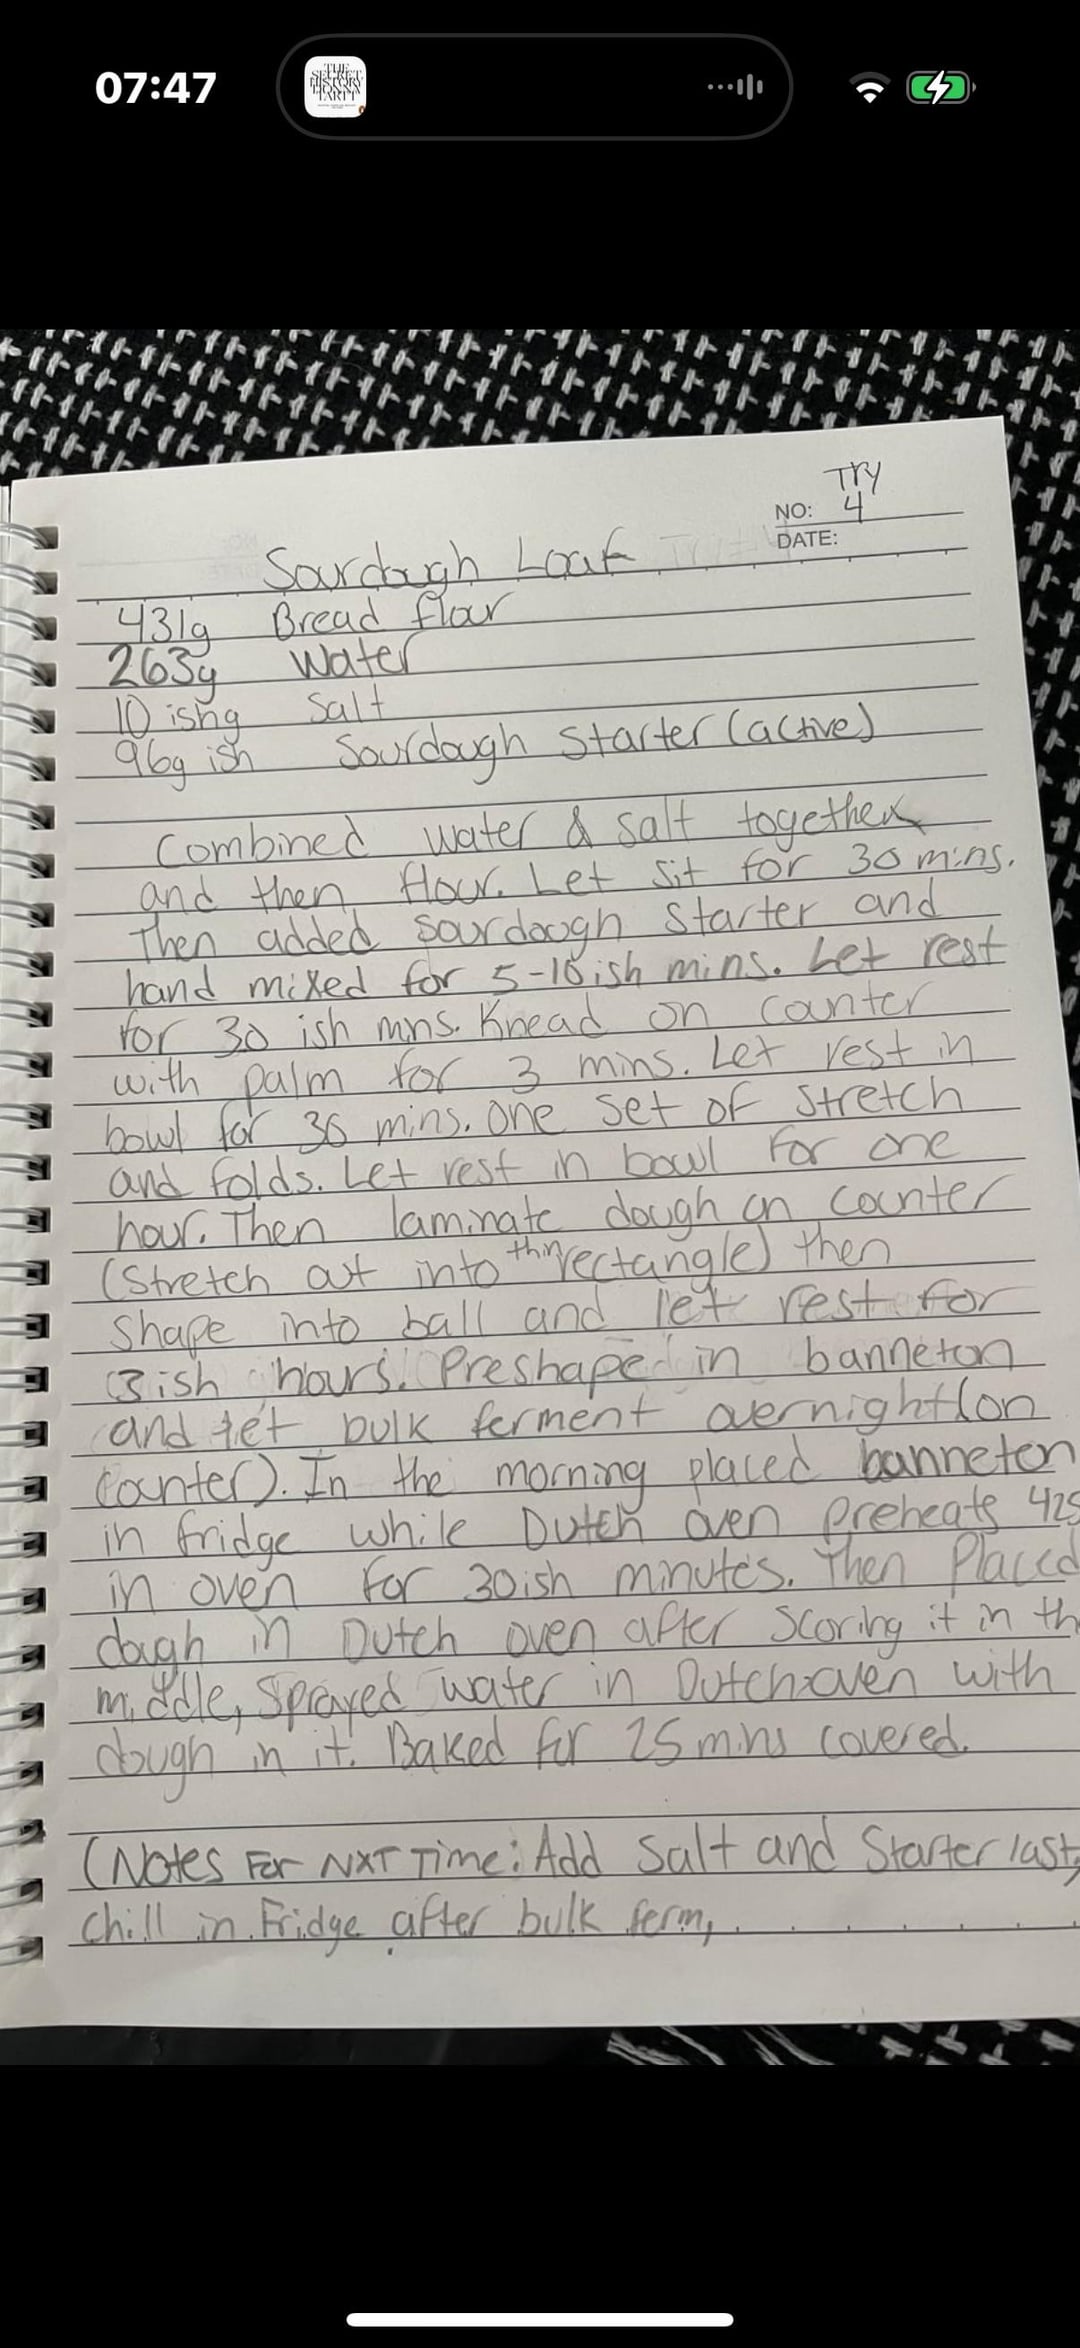 07:47
THE
SECRET
HISTORY
DONNA
TARTT
Try
NO: 4
DATE:
Sourdough Loaf
431g Bread flour
263g Water
10 ishg Salt
96g ish Sourdough Starter (active)
Combined water & salt together
and then flour. Let sit for 30 mins.
Then added sourdough starter and
hand mixed for 5-10ish mins. Let rest
for 30 ish mns. Knead on counter
with palm for 3 mins. Let rest in
bowl for 30 mins. One set of stretch
and folds. Let rest in bowl for one
hour. Then laminate dough on counter
(Stretch out into thin rectangle) then
shape into ball and let rest for
3ish hours. Preshape in banneton
and let bulk ferment overnight (on
counter). In the morning placed banneton
in fridge while Dutch oven preheats 425
in oven for 30ish minutes. Then Placed
dough in Dutch oven after scoring it in th
middle, Sprayed water in Dutch oven with
dough in it. Baked for 25 mins covered.
(Notes For NXT Time: Add Salt and Starter last,
chill in Fridge after bulk ferm,